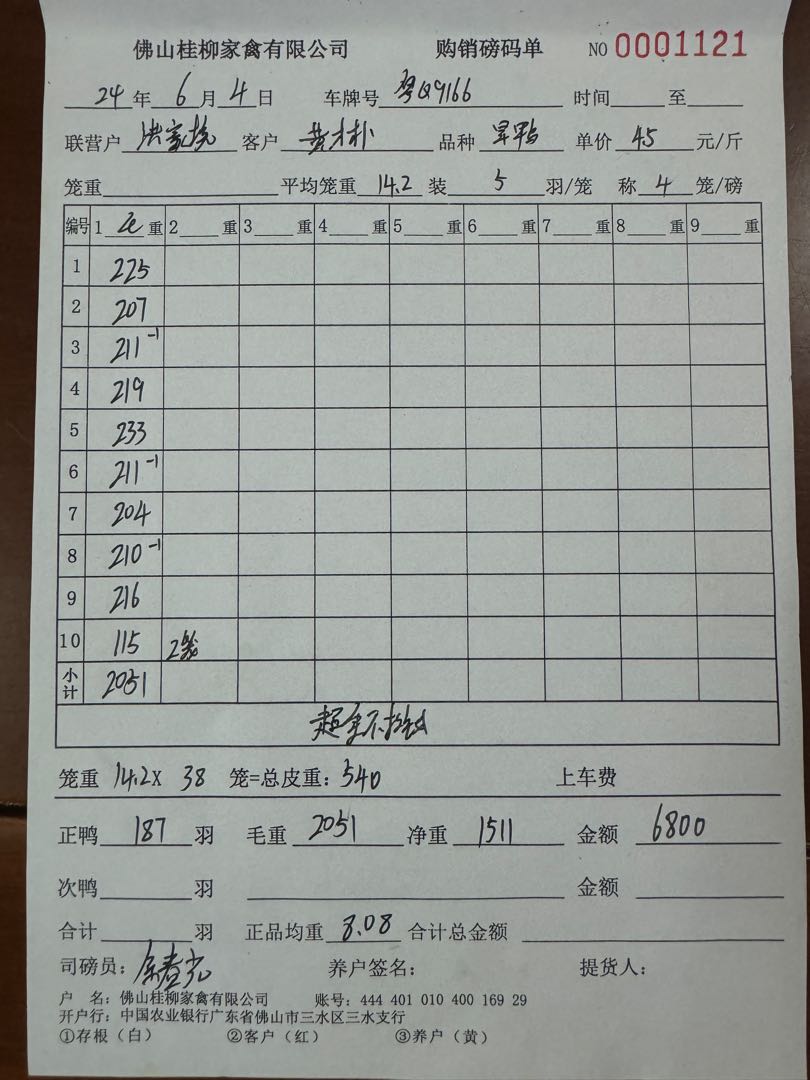 佛山桂柳家禽有限公司 购销磅码单 NO 0001121
24 年 6 月 4 日 车牌号 粤Q9166 时间 至
联营户 洪 客户 黄才朴 品种 旱鸭 单价 45 元/斤
笼重 平均笼重 14.2 装 5 羽/笼 称 4 笼/磅
编号 1 重 2 重 3 重 4 重 5 重 6 重 7 重 8 重 9 重
1 225
2 207
3 211 -1
4 219
5 233
6 211 -1
7 204
8 210 -1
9 216
10 115 2笼
小计 2051
超重不
笼重 14.2X 38 笼=总皮重: 540 上车费
正鸭 187 羽 毛重 2051 净重 1511 金额 6800
次鸭 羽 金额
合计 羽 正品均重 8.08 合计总金额
司磅员: 养户签名: 提货人:
户 名: 佛山桂柳家禽有限公司 账号: 444 401 010 400 169 29
开户行: 中国农业银行广东省佛山市三水区三水支行
①存根(白) ②客户(红) ③养户(黄)